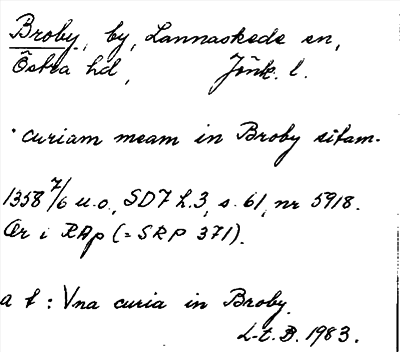 Broby, by, Lannaskede sn,
Östra hd, Jönk. l.
curiam meam in Broby sitam.
1358 7/6 u.o., SD7 h.3, s. 61, nr 5918.
Or i RAp (= SRP 371).
a t : Vna curia in Broby.
L-t. B. 1983.